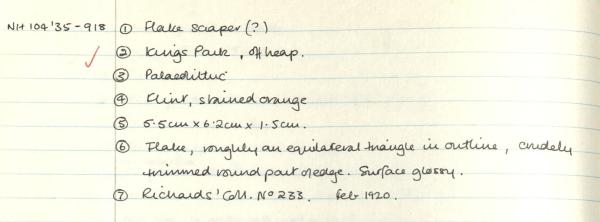 NH 104'35-918 ① Flake scraper (?)
② Kings Park, off heap.
③ Palaeolithic
④ Flint, stained orange
⑤ 5.5cm x 6.2cm x 1.5cm.
⑥ Flake, roughly an equilateral triangle in outline, crudely
trimmed round part of edge. Surface glossy.
⑦ Richards' Coll. Nº 233. Feb 1920.